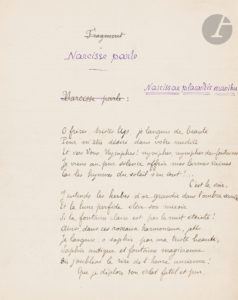 Fragment
Narcisse parle
Narcissae placandis manibus
Narcisse parle :
O frères tristes lys, je languis de beauté
Pour m'être désiré dans votre nudité
Et vers Vous Nymphes ! nymphes, nymphes des fontaines
Je viens au pur silence offrir mes larmes vaines
Car les hymnes du soleil s'en vont !...
C'est le soir.
J'entends les herbes d'or grandir dans l'ombre
Et la lune perfide élève son miroir
Si la fontaine claire est par la nuit éteinte !
Ainsi dans ces roseaux harmonieux, jeté
Je languis, ô saphir par ma triste beauté,
Saphir antique et fontaine magicienne
Où j'oubliai le rire de l'heure ancienne !
Que je déplore ton éclat fatal et pur